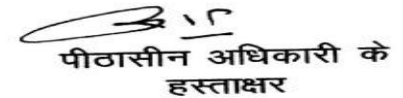 पीठासीन अधिकारी के
हस्ताक्षर